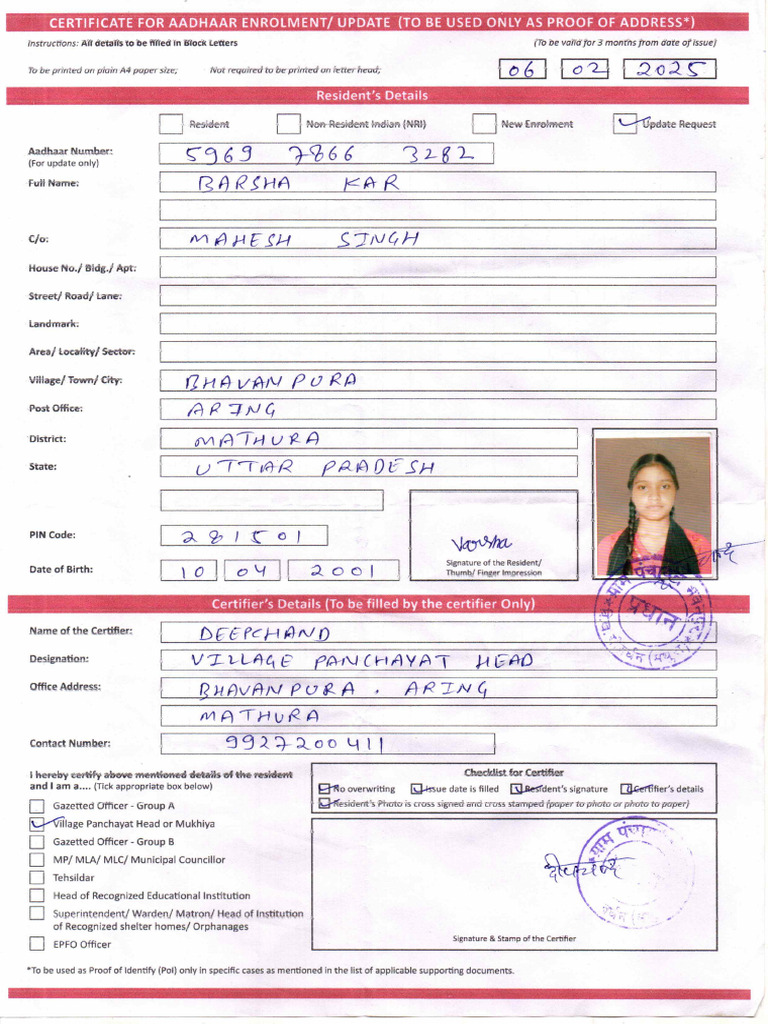 CERTIFICATE FOR AADHAAR ENROLMENT/ UPDATE (TO BE USED ONLY AS PROOF OF ADDRESS*)
Instructions: All details to be filled in Block Letters (To be valid for 3 months from date of issue)
To be printed on plain A4 paper size; Not required to be printed on letter head; 06 02 2025
Resident's Details
Resident Non Resident Indian (NRI) New Enrolment Update Request
Aadhaar Number: 5969 7866 3282
(For update only)
Full Name: BARSHA KAR
C/o: MAHESH SINGH
House No./ Bldg./ Apt:
Street/ Road/ Lane:
Landmark:
Area/ Locality/ Sector:
Village/ Town/ City: BHAVANPURA
Post Office: ARING
District: MATHURA
State: UTTAR PRADESH
PIN Code: 281501
Varsha
Signature of the Resident/
Thumb/ Finger Impression
Date of Birth: 10 04 2001
ग्राम पंचायत
प्रधान
Certifier's Details (To be filled by the certifier Only)
Name of the Certifier: DEEPCHAND
Designation: VILLAGE PANCHAYAT HEAD
Office Address: BHAVANPURA. ARING
MATHURA
Contact Number: 9927200411
I hereby certify above mentioned details of the resident
and I am a.... (Tick appropriate box below)
Gazetted Officer - Group A
Village Panchayat Head or Mukhiya
Gazetted Officer - Group B
MP/ MLA/ MLC/ Municipal Councillor
Tehsildar
Head of Recognized Educational Institution
Superintendent/ Warden/ Matron/ Head of Institution
of Recognized shelter homes/ Orphanages
EPFO Officer
Checklist for Certifier
No overwriting Issue date is filled Resident's signature Certifier's details
Resident's Photo is cross signed and cross stamped (paper to photo or photo to paper)
ग्राम
दीपचन्द
Signature & Stamp of the Certifier
*To be used as Proof of Identify (PoI) only in specific cases as mentioned in the list of applicable supporting documents.